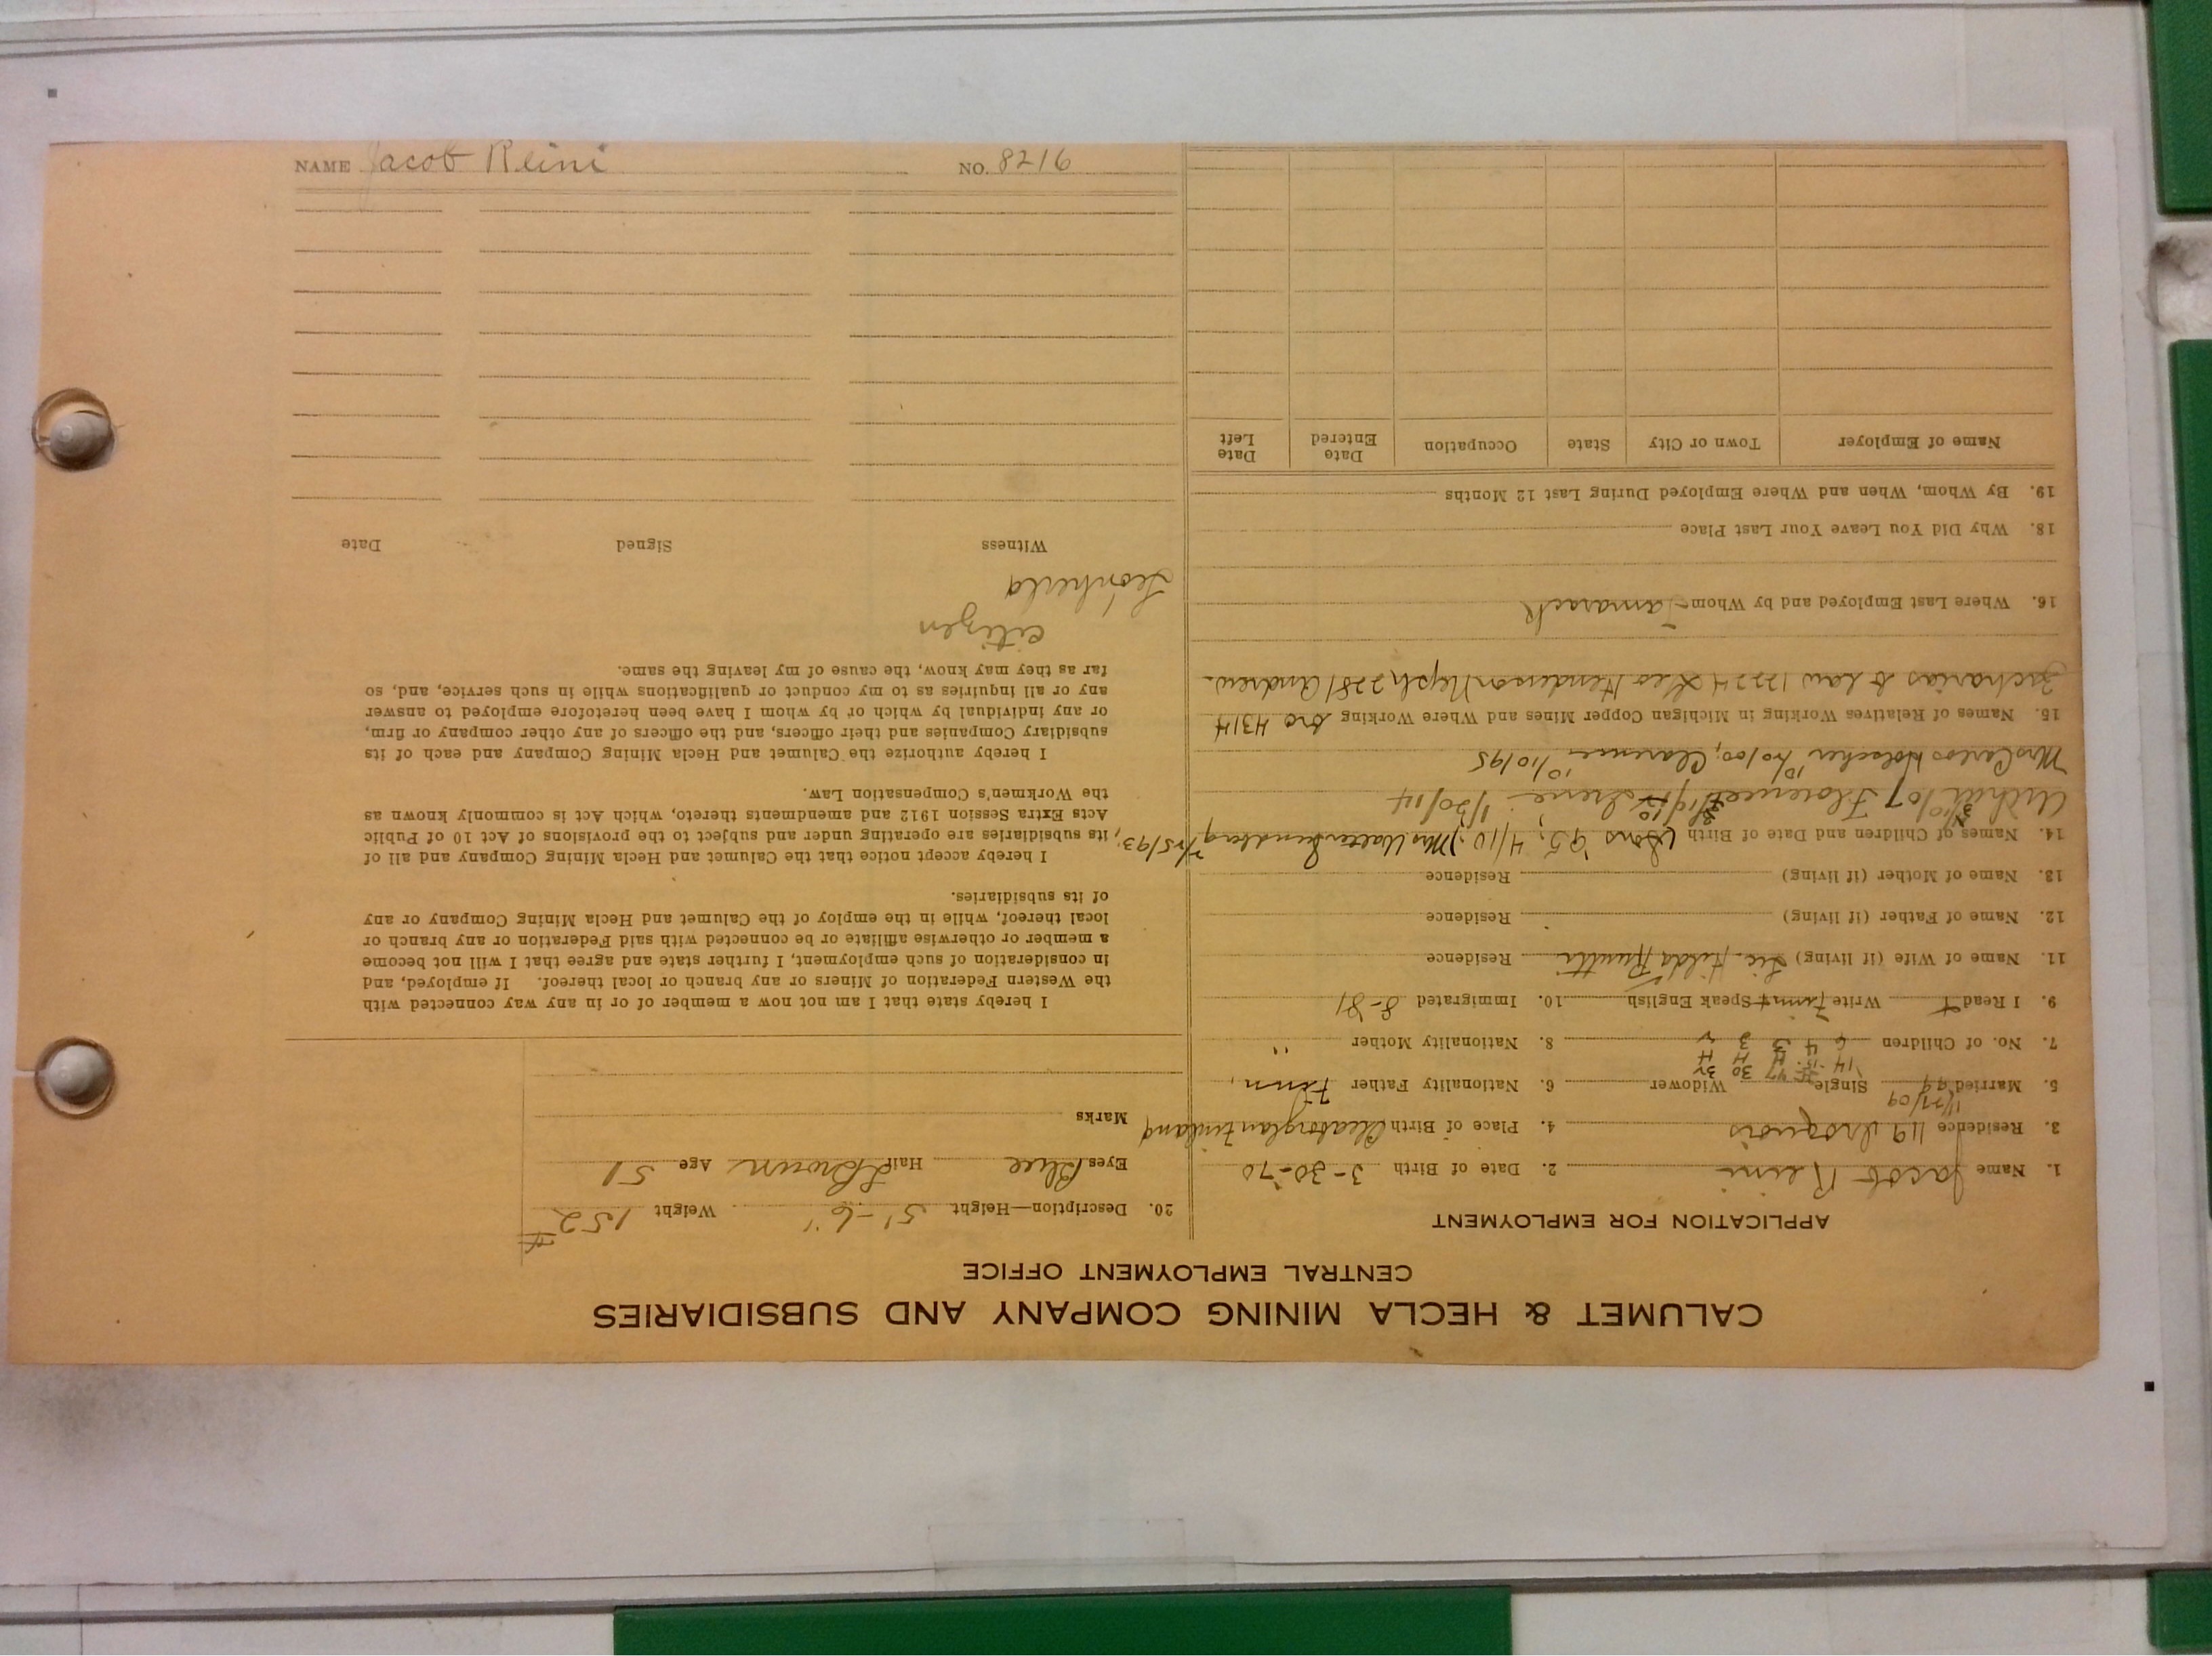 NAME Jacob Reini NO. 8216
CALUMET & HECLA MINING COMPANY AND SUBSIDIARIES
CENTRAL EMPLOYMENT OFFICE
APPLICATION FOR EMPLOYMENT
1. Name Jacob Reini 2. Date of Birth 3-30-70
3. Residence 119 Iroquois 4. Place of Birth Finland
11/27/09
5. Married Single Widower 6. Nationality Father Finn
7. No. of Children 6 4 3 3 2 8. Nationality Mother "
9. I Read Write Finn Speak English 10. Immigrated 8-81
11. Name of Wife (if living) Hilda Residence
12. Name of Father (if living) Residence
13. Name of Mother (if living) Residence
14. Names of Children and Date of Birth 4/10; Mrs Walter 7/25/93,
3/10/07 Florence 1/20/14
Mrs Carlos 10/20/00, Clarence 10/10/95
15. Names of Relatives Working in Michigan Copper Mines and Where Working bro 4314
Zacharias b law 12224 Leo Henderson Neph 2281 Andrew
16. Where Last Employed and by Whom Tamarack
18. Why Did You Leave Your Last Place
19. By Whom, When and Where Employed During Last 12 Months
Name of Employer Town or City State Occupation Date Entered Date Left
20. Description—Height 5'-6" Weight 152#
Eyes Blue Hair Brown Age 51
Marks
I hereby state that I am not now a member of or in any way connected with
the Western Federation of Miners or any branch or local thereof. If employed, and
in consideration of such employment, I further state and agree that I will not become
a member or otherwise affiliate or be connected with said Federation or any branch or
local thereof, while in the employ of the Calumet and Hecla Mining Company or any
of its subsidiaries.
I hereby accept notice that the Calumet and Hecla Mining Company and all of
its subsidiaries are operating under and subject to the provisions of Act 10 of Public
Acts Extra Session 1912 and amendments thereto, which Act is commonly known as
the Workmen's Compensation Law.
I hereby authorize the Calumet and Hecla Mining Company and each of its
subsidiary Companies and their officers, and the officers of any other company or firm,
or any individual by which or by whom I have been heretofore employed to answer
any or all inquiries as to my conduct or qualifications while in such service, and, so
far as they may know, the cause of my leaving the same.
citizen
Witness Signed Date